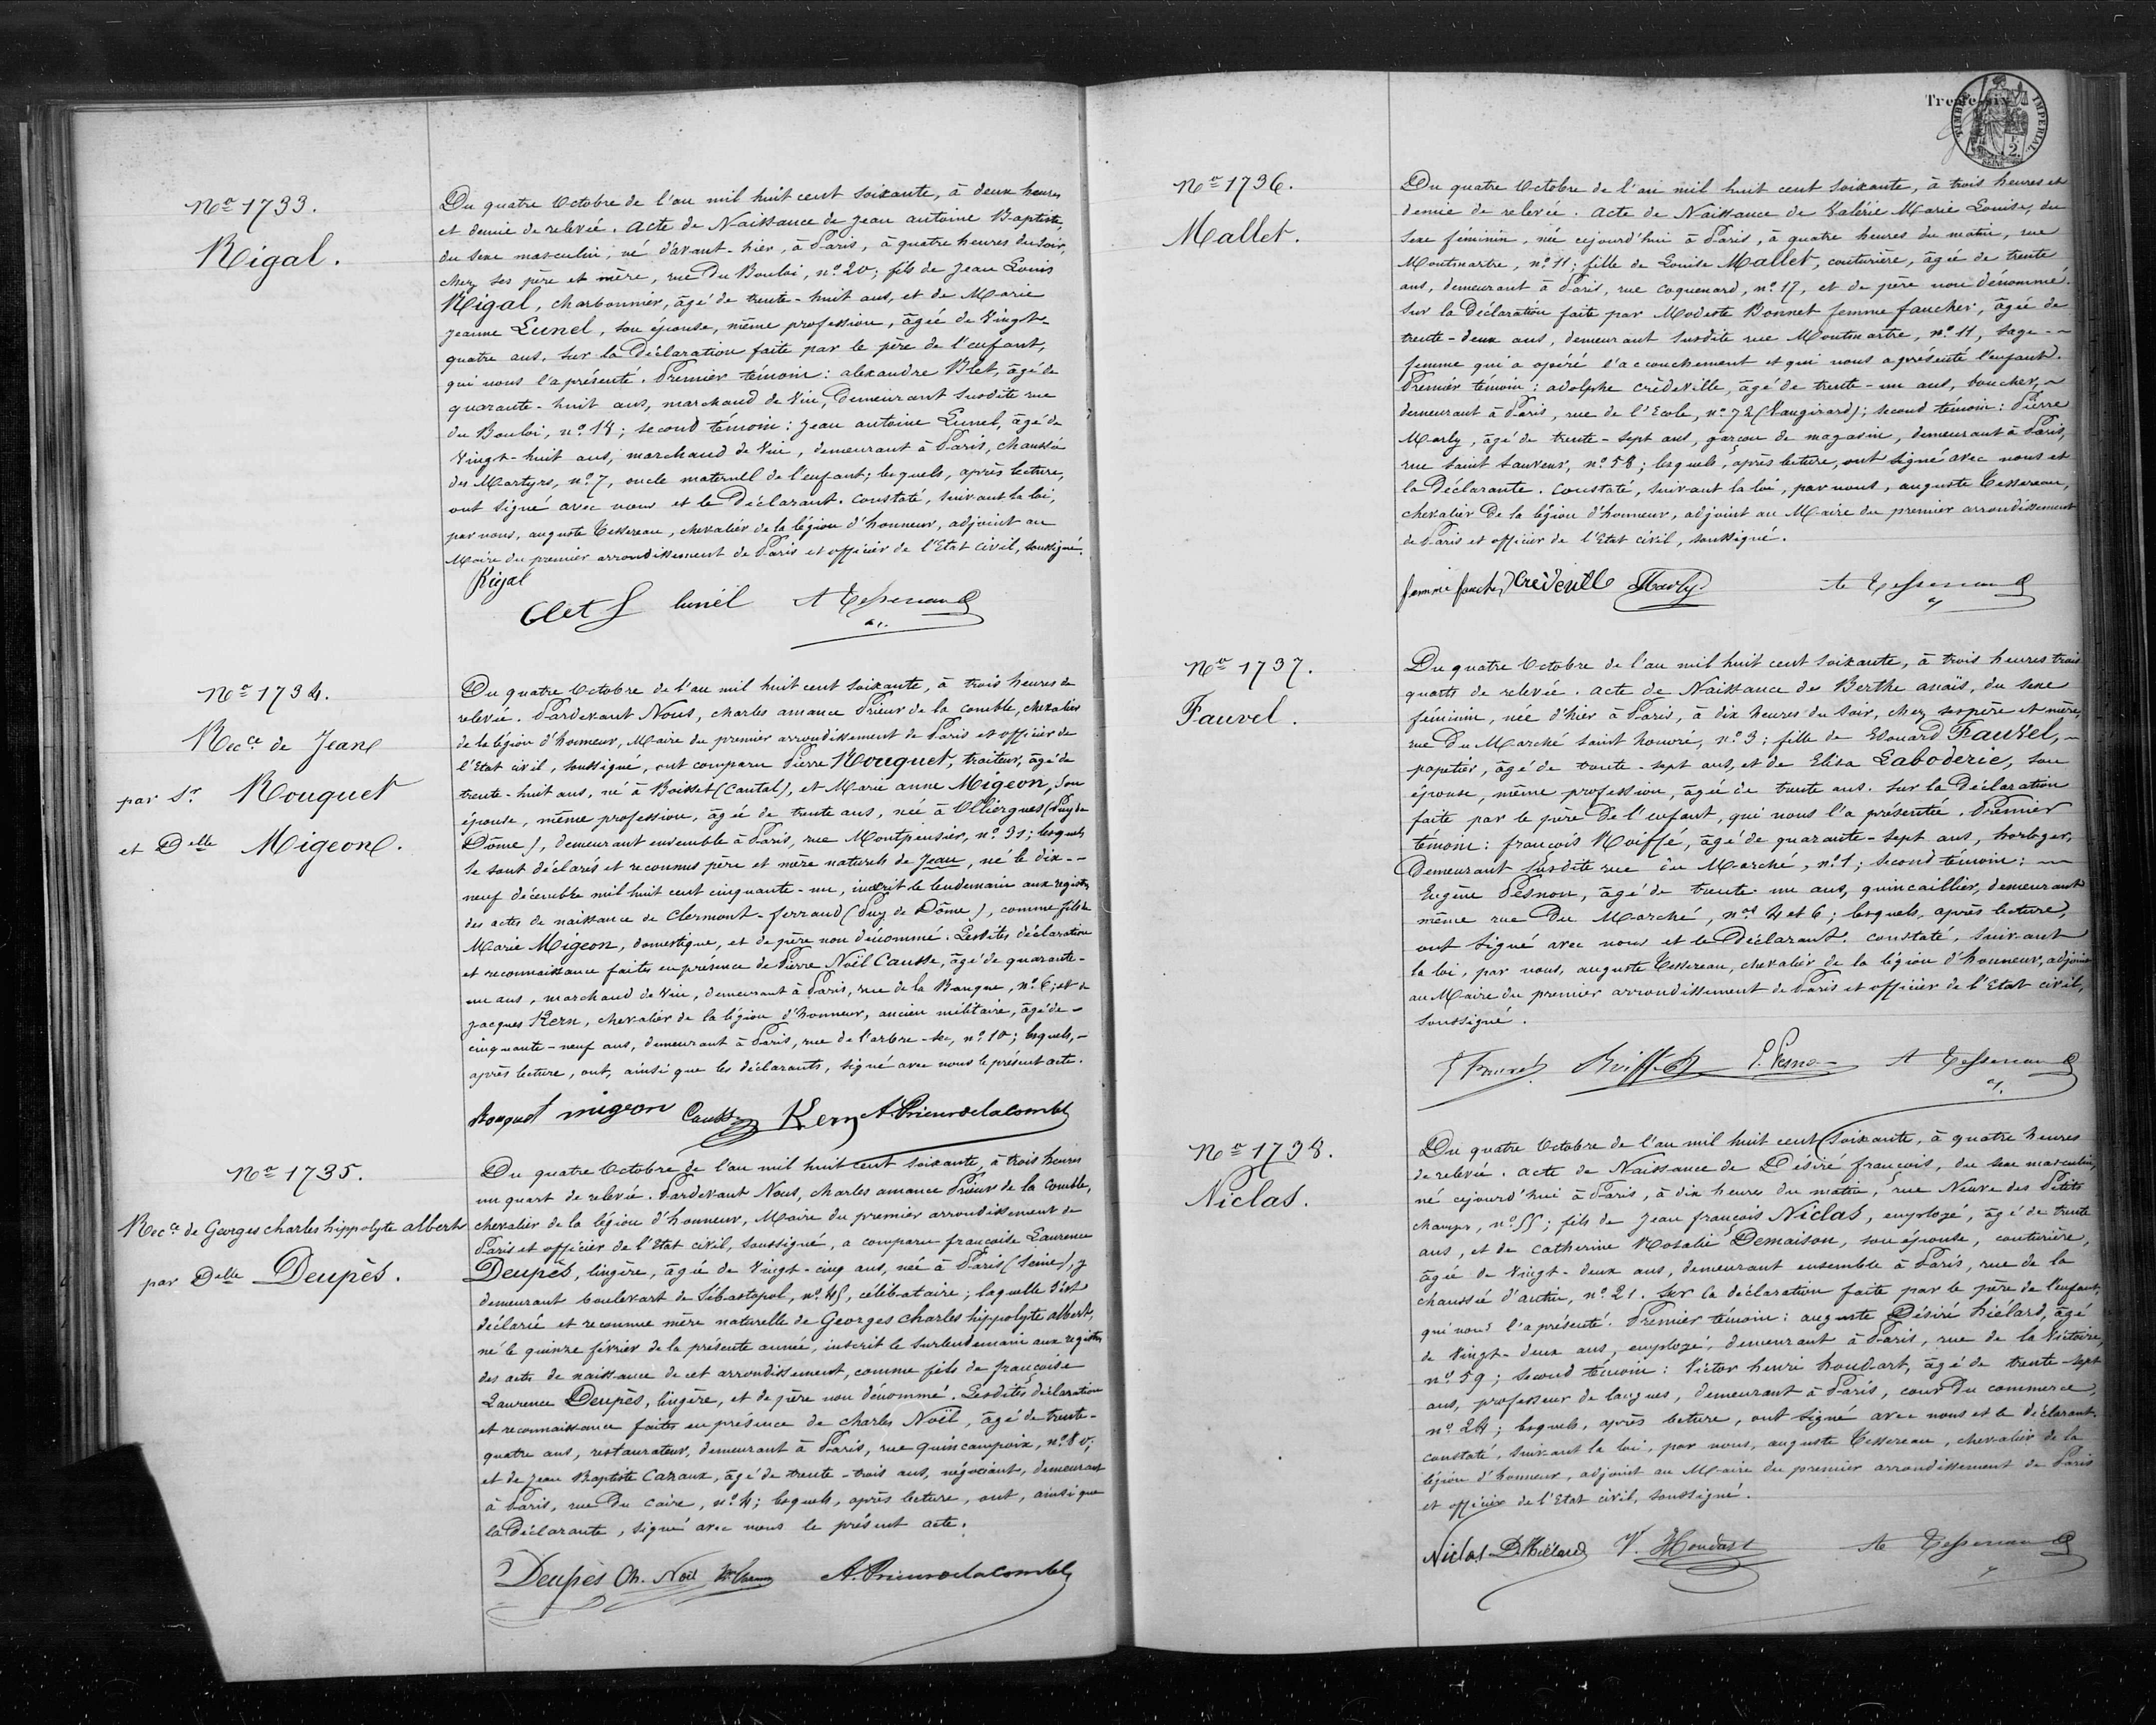 Nº 1733.
Rigal.
Du quatre Octobre de l'an mil huit cent soixante, à deux heures
et demie de relevée. Acte de Naissance de Jean antoine Baptiste,
du sexe masculin, né d'avant-hier, à Paris, à quatre heures du soir,
chez ses père et mère, rue Du Bouloi, nº 20; fils de Jean Louis
Rigal, charbonnier, âgé de trente-huit ans, et de Marie
Jeanne Lunel, son épouse, même profession, âgée de Vingt-
quatre ans. Sur la Déclaration faite par le père de l'enfant,
qui nous l'a présenté. Premier témoin: alexandre Blet, âgé de
quarante-huit ans, marchand de Vin, Demeurant susdite rue
du Bouloi, nº 18; second témoin: Jean antoine Lunel, âgé de
Vingt-huit ans, marchand de Vin, demeurant à Paris, chaussée
des Martyrs, nº 7, oncle maternel de l'enfant; lesquels, après lecture,
ont signé avec nous et le Déclarant. constaté, suivant la loi,
par nous, auguste Tessereau, chevalier de la légion d'honneur, adjoint au
Maire du premier arrondissement de Paris et officier de l'Etat civil, soussigné.
Rigal
Blet lunel A Tessereau
Nº 1734.
Recce de Jean
par Sr Rouquet
et Delle Migeon.
Du quatre Octobre de l'an mil huit cent soixante, à trois heures de
relevée. Pardevant Nous, charles amance Prieur de la comble, chevalier
de la légion d'honneur, Maire du premier arrondissement de Paris et officier de
l'Etat civil, soussigné, ont comparu Pierre Rouquet, traiteur, âgé de
trente-huit ans, né à Boisset (Cantal), et Marie anne Migeon, son
épouse, même profession, âgée de trente ans, née à Olliergues (Puy de
Dôme), demeurant ensemble à Paris, rue Montpensier, nº 31; lesquels
se sont déclarés et reconnus père et mère naturels de Jean, né le dix-
neuf décembre mil huit cent cinquante-un, inscrit le lendemain aux registres
des actes de naissance de Clermont-ferrand (Puy de Dôme), comme fils de
Marie Migeon, domestique, et de père non dénommé. Lesdites déclaration
et reconnaissance faites en présence de Pierre Noël Causse, âgé de quarante-
un ans, marchand de Vin, demeurant à Paris, rue de la Banque, nº 6; et de
Jacques Kern, chevalier de la légion d'honneur, ancien militaire, âgé de
cinquante-neuf ans, demeurant à Paris, rue de l'arbre-sec, nº 10; lesquels,
après lecture, ont, ainsi que les déclarants, signé avec nous le présent acte.
Rouquet migeon Causse Kern A. Prieur de la comble
Nº 1735.
Recce de Georges charles hippolyte albert
par Delle Deupès.
Du quatre Octobre de l'an mil huit cent soixante, à trois heures
un quart de relevée. Pardevant Nous, charles amance Prieur de la Comble,
chevalier de la légion d'honneur, Maire du premier arrondissement de
Paris et officier de l'Etat civil, soussigné, a comparu françoise Laurence
Deupès, lingère, âgée de Vingt-cinq ans, née à Paris (Seine), y
demeurant boulevart de Sébastopol, nº 45, célibataire; laquelle s'est
déclarée et reconnue mère naturelle de Georges charles hippolyte albert,
né le quinze février de la présente année, inscrit le surlendemain aux registres
des actes de naissance de cet arrondissement, comme fils de françoise
Laurence Deupès, lingère, et de père non dénommé. Lesdites déclaration
et reconnaissance faites en présence de charles Noël, âgé de trente-
quatre ans, restaurateur, demeurant à Paris, rue quincampoix, nº 80;
et de Jean Baptiste Cazaux, âgé de trente-trois ans, négociant, demeurant
à Paris, rue Du Caire, nº 4; lesquels, après lecture, ont, ainsi que
la Déclarante, signé avec nous le présent acte.
Deupès Ch. Noël A. Prieur de la comble
Trente-six
TIMBRE IMPERIAL
SEINE
2
Nº 1736.
Mallet.
Du quatre Octobre de l'an mil huit cent soixante, à trois heures et
demie de relevée. Acte de Naissance de Valérie Marie Louise, du
sexe féminin, née cejourd'hui à Paris, à quatre heures du matin, rue
Montmartre, nº 11; fille de Louise Mallet, couturière, âgée de trente
ans, demeurant à Paris, rue coquenard, nº 17, et de père non dénommé.
Sur la Déclaration faite par Modeste Bonnet femme faucher, âgée de
trente-deux ans, demeurant susdite rue Montmartre, nº 11, sage-
femme qui a opéré l'accouchement et qui nous a présenté l'enfant.
Premier témoin: adolphe Crèdeville, âgé de trente-un ans, boucher,
demeurant à Paris, rue de l'Ecole, nº 72 (Vaugirard); second témoin: Pierre
Marly, âgé de trente-sept ans, garçon de magasin, demeurant à Paris,
rue Saint Sauveur, nº 58; lesquels, après lecture, ont signé avec nous et
la Déclarante. Constaté, suivant la loi, par nous, auguste Tessereau,
chevalier De la légion d'honneur, adjoint au Maire du premier arrondissement
de Paris et officier de l'Etat civil, soussigné.
femme faucher Crèdeville Marly A Tessereau
Nº 1737.
Fauvel.
Du quatre Octobre de l'an mil huit cent soixante, à trois heures trois
quarts de relevée. Acte de Naissance de Berthe anaïs, du sexe
féminin, née d'hier à Paris, à dix heures du soir, chez ses père et mère,
rue Du Marché Saint honoré, nº 3; fille de Edouard Fauvel,
papetier, âgé de trente-sept ans, et de Elisa Laboderie, son
épouse, même profession, âgée de trente ans. Sur la Déclaration
faite par le père De l'enfant, qui nous l'a présentée. Premier
témoin: françois Roiffé, âgé de quarante-sept ans, horloger,
Demeurant susdite rue du Marché, nº 1; second témoin:
Eugène Pesnon, âgé de trente-un ans, quincaillier, demeurant
même rue Du Marché, nos 4 et 6; lesquels, après lecture,
ont signé avec nous et le Déclarant. constaté, suivant
la loi, par nous, auguste Tessereau, chevalier de la légion d'honneur, adjoint
au Maire du premier arrondissement de Paris et officier de l'Etat civil,
soussigné.
E Fauvel Roiffé E. Pesnon A Tessereau
Nº 1738.
Niclas.
Du quatre Octobre de l'an mil huit cent soixante, à quatre heures
de relevée. Acte de Naissance de Désiré françois, du sexe masculin,
né cejourd'hui à Paris, à dix heures du matin, rue Neuve des Petits
champs, nº 55; fils de Jean françois Niclas, employé, âgé de trente
ans, et de catherine Rosalie Demaison, son épouse, couturière,
âgée de Vingt-deux ans, demeurant ensemble à Paris, rue de la
chaussée d'antin, nº 21. Sur la déclaration faite par le père de l'enfant,
qui nous l'a présenté. Premier témoin: auguste Désiré hiélard, âgé
de Vingt-deux ans, employé, demeurant à Paris, rue de la Victoire,
nº 59; second témoin: Victor henri houdart, âgé de trente-sept
ans, professeur de langues, demeurant à Paris, cour Du commerce,
nº 24; lesquels, après lecture, ont signé avec nous et le déclarant.
constaté, suivant la loi, par nous, auguste Tessereau, chevalier de la
légion d'honneur, adjoint au Maire du premier arrondissement de Paris
et officier de l'Etat civil, soussigné.
Niclas D. Hiélard V. Houdart A Tessereau